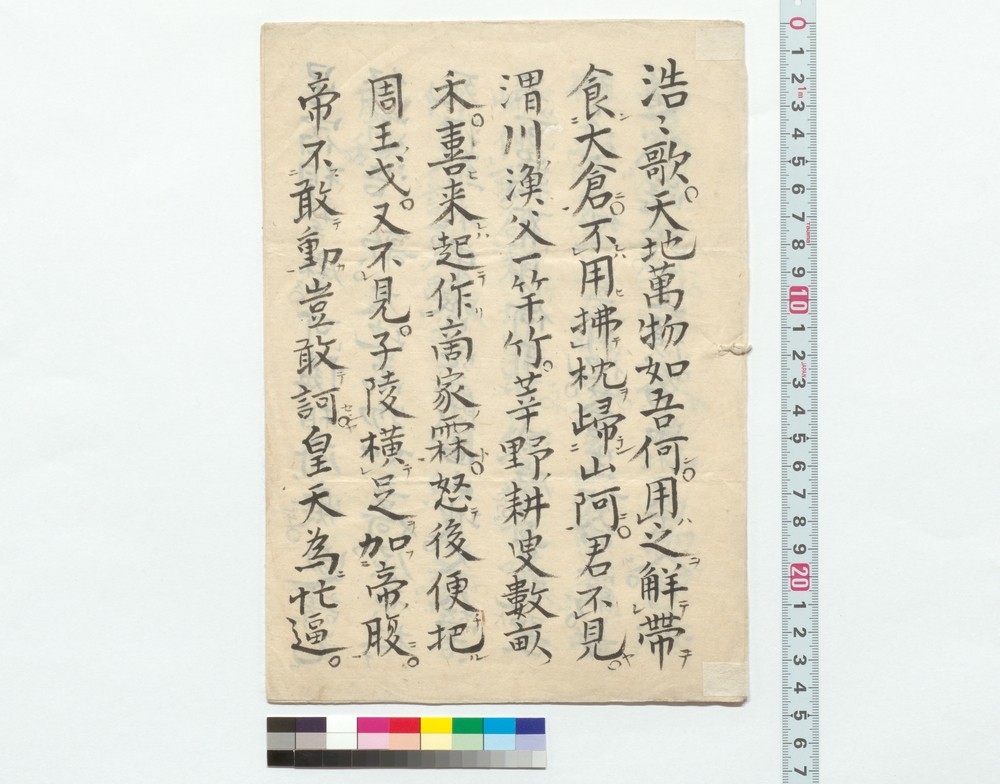 浩〻歌天地萬物如吾何用之解帶
食大倉不用拂枕歸山阿君不見
渭川漁父一竿竹莘野耕叟數畝
禾喜来起作商家霖怒後便把
周王戈又不見子陵橫足加帝腹
帝不敢動豈敢訶皇天為忙逼
0
1
2
3
4
5
6
7
8
9
10
1
2
3
4
5
6
7
8
9
20
1
2
3
4
5
6
7